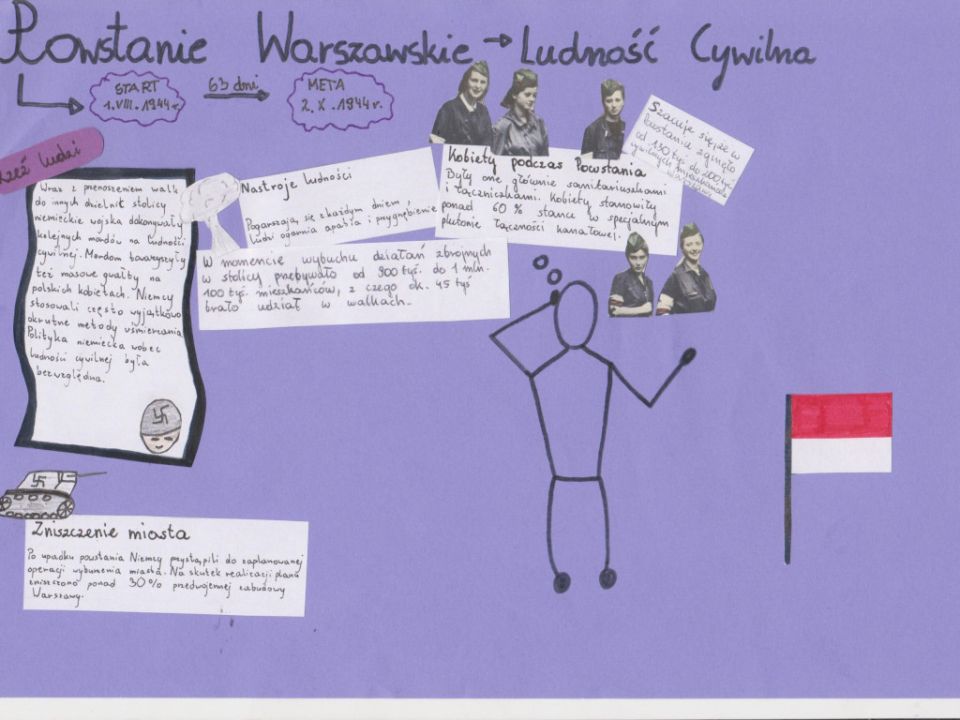 Powstanie Warszawskie → Ludność Cywilna
START
1.VIII.1944r.
63 dni
META
2.X.1944r.
Rzeź ludzi
Wraz z przenoszeniem walk
do innych dzielnic stolicy
niemieckie wojska dokonywały
kolejnych mordów na ludności
cywilnej. Mordom towarzyszyły
też masowe gwałty na
polskich kobietach. Niemcy
stosowali często wyjątkowo
okrutne metody uśmiercania.
Polityka niemiecka wobec
ludności cywilnej była
bezwzględna.
Nastroje ludności
Pogarszają się z każdym dniem,
ludzi ogarnia apatia i przygnębienie
W momencie wybuchu działań zbrojnych
w stolicy przebywało od 900 tyś. do 1 mln.
100 tyś. mieszkańców, z czego ok. 45 tyś
brało udział w walkach.
Kobiety podczas Powstania
Były one głównie sanitariuszkami
i łączniczkami. Kobiety stanowiły
ponad 60% stanu w specjalnym
plutonie łączności kanałowej.
Szacuje się, że w
Powstaniu zginęło
od 150 tyś. do 200 tyś.
cywilnych mieszkańców
Warszawy.
Zniszczenie miasta
Po upadku powstania Niemcy przystąpili do zaplanowanej
operacji wyburzenia miasta. Na skutek realizacji planu
zniszczono ponad 30% przedwojennej zabudowy
Warszawy.